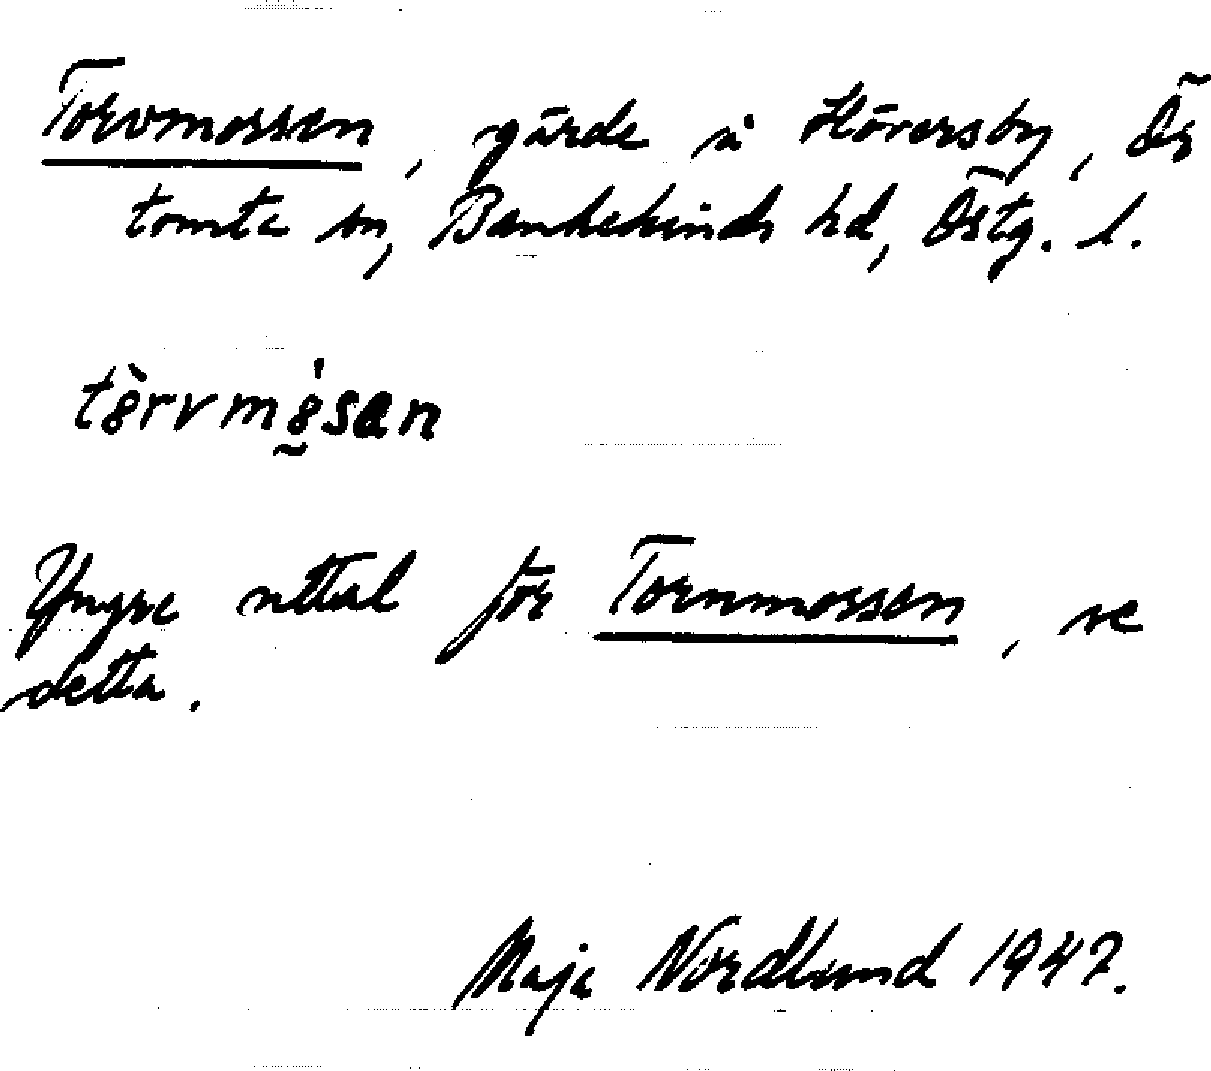 Torvmossen, gärde å Höversby, Ös
tomta sn, Bankekinds hd, Östg. l.
tòrvmósan
Yngre uttal för Tornmossen, se
detta.
Maja Nordlund 1947.